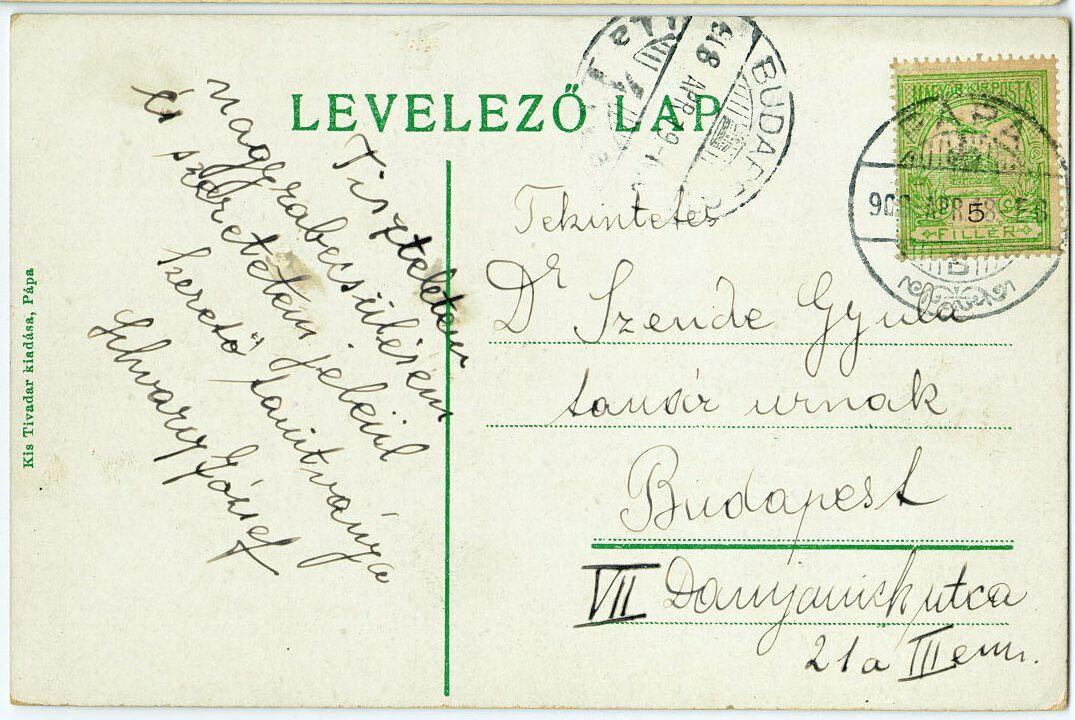 LEVELEZŐ LAP
Tisztelelem
nagyrabecsülésem
és szeretetem jeléül
Szerető tanítványa
Schwarz József
Tekintetes
Dr Szende Gyula
tanár urnak
Budapest
VII Damjanich utca
21a III em.
Kis Tivadar kiadása, Pápa
MAGYAR KIR. POSTA
5
FILLÉR
BUDAPEST
918 APR
APR. 8.
B